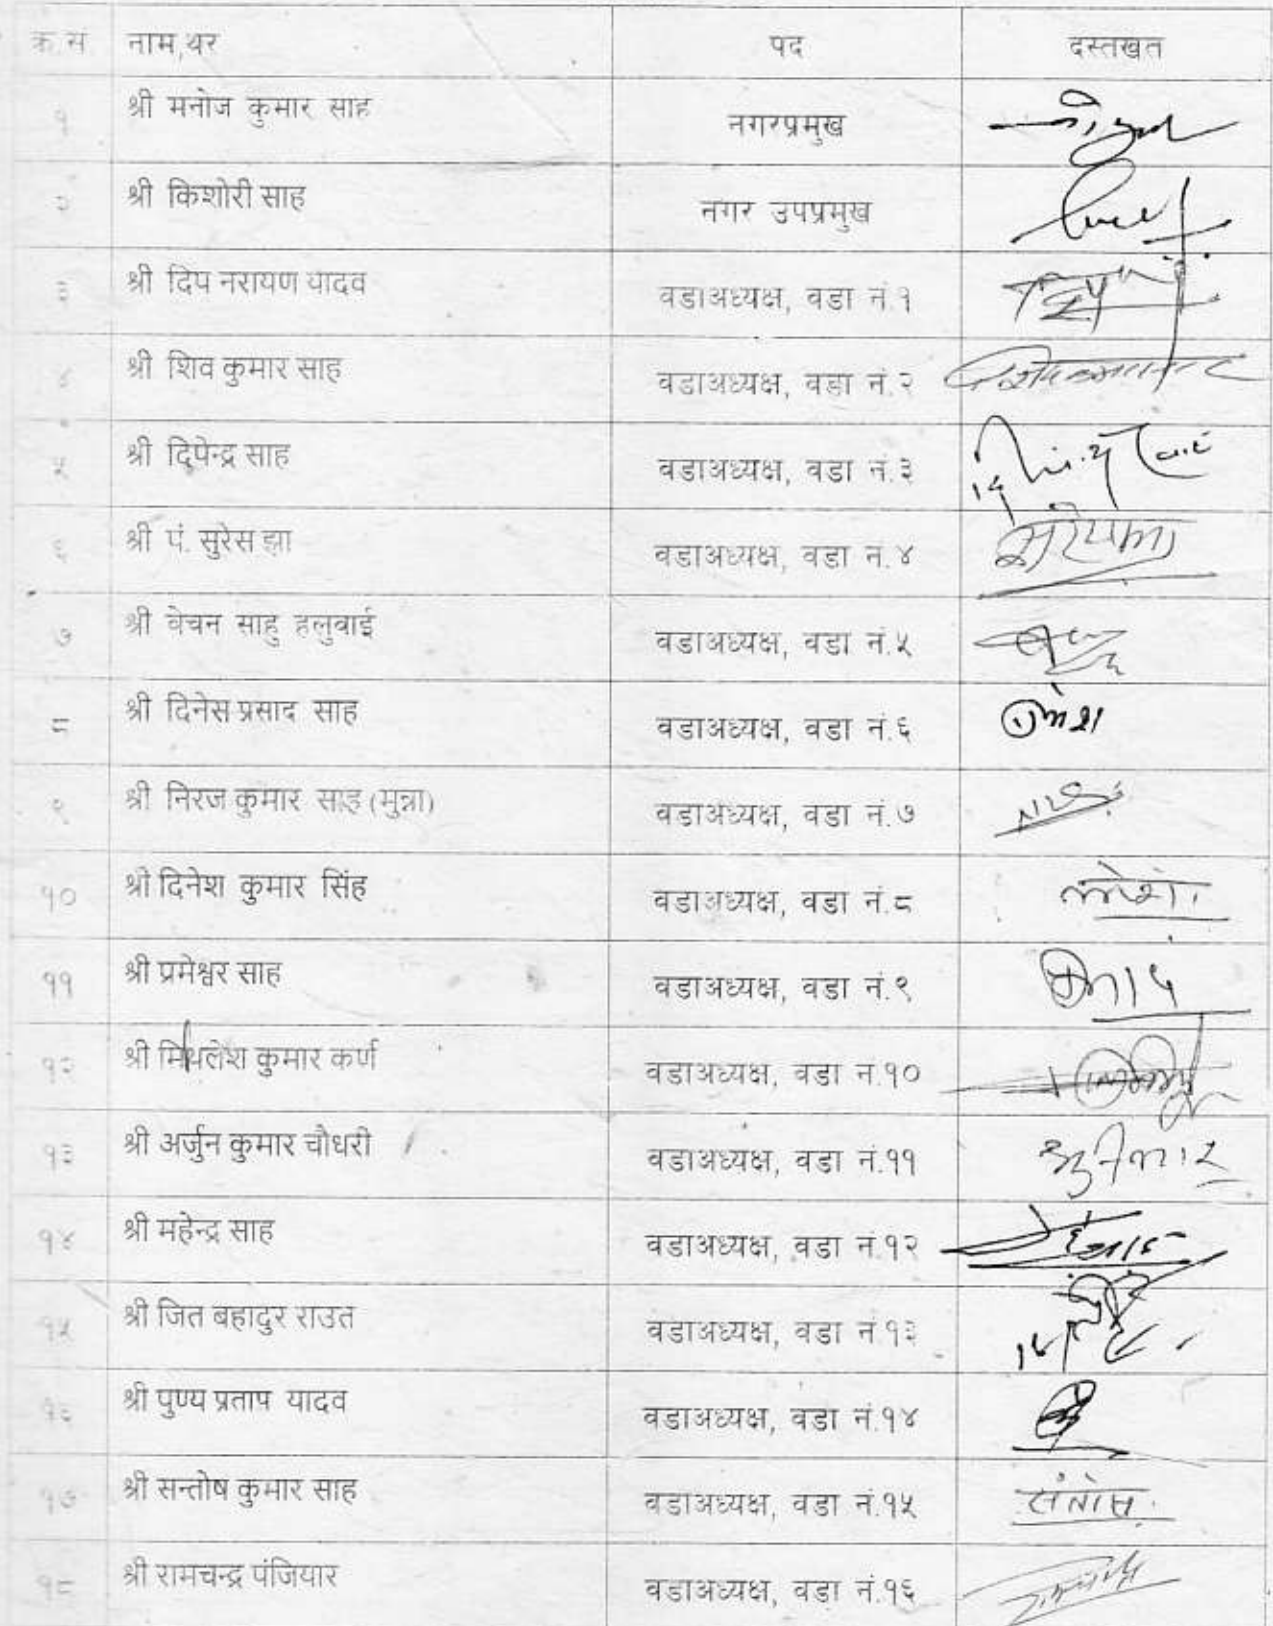 क्र.सं नाम,थर पद दस्तखत
१ श्री मनोज कुमार साह नगरप्रमुख
२ श्री किशोरी साह नगर उपप्रमुख
३ श्री दिप नरायण यादव वडाअध्यक्ष, वडा नं.१
४ श्री शिव कुमार साह वडाअध्यक्ष, वडा नं.२
५ श्री दिपेन्द्र साह वडाअध्यक्ष, वडा नं.३
६ श्री पं. सुरेस झा वडाअध्यक्ष, वडा नं.४
७ श्री वेचन साहु हलुवाई वडाअध्यक्ष, वडा नं.५
८ श्री दिनेस प्रसाद साह वडाअध्यक्ष, वडा नं.६
९ श्री निरज कुमार साह (मुन्ना) वडाअध्यक्ष, वडा नं.७
१० श्री दिनेश कुमार सिंह वडाअध्यक्ष, वडा नं.८
११ श्री प्रमेश्वर साह वडाअध्यक्ष, वडा नं.९
१२ श्री मिथलेश कुमार कर्ण वडाअध्यक्ष, वडा नं.१०
१३ श्री अर्जुन कुमार चौधरी वडाअध्यक्ष, वडा नं.११
१४ श्री महेन्द्र साह वडाअध्यक्ष, वडा नं.१२
१५ श्री जित बहादुर राउत वडाअध्यक्ष, वडा नं.१३
१६ श्री पुण्य प्रताप यादव वडाअध्यक्ष, वडा नं.१४
१७ श्री सन्तोष कुमार साह वडाअध्यक्ष, वडा नं.१५ संतोस
१८ श्री रामचन्द्र पंजियार वडाअध्यक्ष, वडा नं.१६